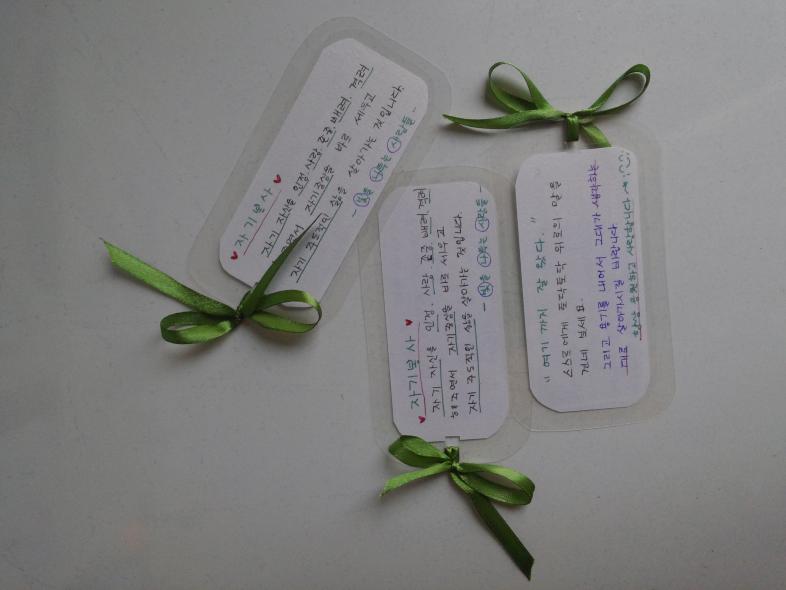 ♥ 자기봉사 ♥
자기 자신을 인정. 사랑. 존중. 배려. 격려
해주면서 자기중심을 바르 세우고
자기 주도적인 삶을 살아가는 것입니다.
- 빛을 나누는 사람들 -
♥ 자기봉사 ♥
자기 자신을 인정. 사랑. 존중. 배려. 격려
해주면서 자기중심을 바로 세우고
자기 주도적인 삶을 살아가는 것입니다.
- 빛을 나누는 사람들 -
" 여기 까지 잘 왔다. "
스스로에게 토닥토닥 위로의 말을
건네 보세요.
그리고 용기를 내어서 그대가 생각하는
대로 살아가시길 바랍니다
항상 응원하고 사랑합니다